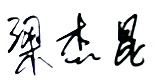 梁杰昆